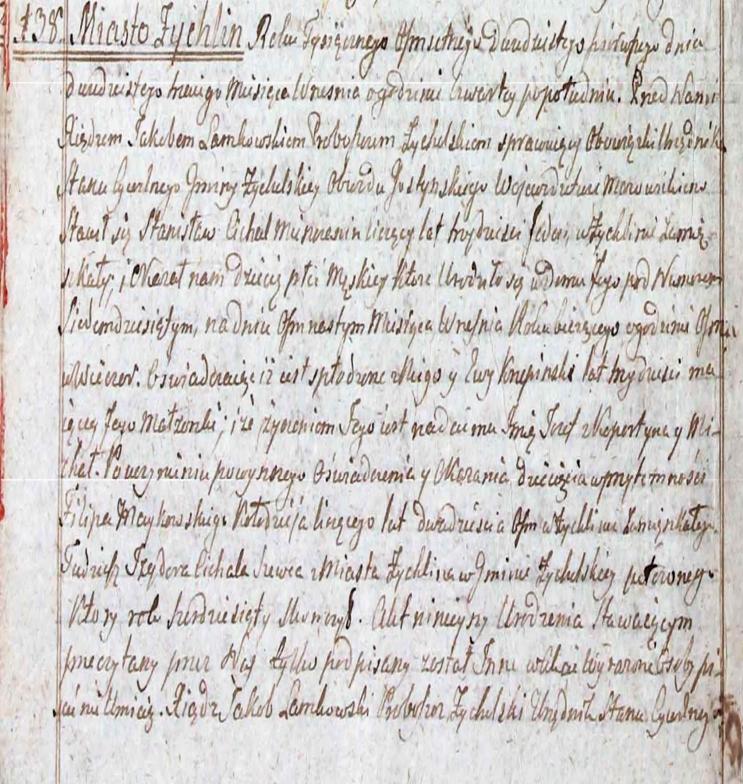 138. Miasto Żychlin Roku Tysięcznego Ośmsetnego Dwudziestego pierwszego dnia
dwudziestego trzeciego Miesiąca Wrzesnia o godzinie czwarty popołudniu. Przed Nami
Xiędzem Jakobem Lamkowskiem Proboszczem Zychelskiem sprawuiący Obowiązki Urzędnika
Stanu Cywilnego Gminy Zychelskiey Obwodu Gostynskiego Wojewodztwie Mazowieckiem
Stawił się Stanisław Cichal liczący lat trzydziesci Jeden, w Zychlinie Zamię-
szkały, i Okazał nam Dziecię płci Męskiey Ktore Urodziło się w Domu Jego pod Numerem
Siedemdziesiątym, na dniu Osmnastym Miesiąca Wrzesnia Roku bieżącego o godzinie Osmej
w Wieczor. Oswiadczaiąc iż iest spłodzone z Niego y Ewy lat trzydziesci ma-
iącey Jego Małżonki; i że życzeniem Jego iest nadać mu Imię Jozef z Kopertyna y Mi-
chał. Po uczynieniu powyższego Oswiadczenia y Okazania dziecięcia w przytomności
Filipa Maykowskiego Kołodzieja liczącego lat dwadziescia Osm w Zychlinie Zamięszkałego
Tudzież Izydora Cichala Szewca z Miasta Zychlina w Gminie Zychelskiey położonego
Ktory rok Czterdziesięty skonczył. Akt ninieyszy Urodzenia Stawaiącym
przeczytany przez Nas tylko podpisany został Inne Wyrażone Osoby pi-
sać nie Umieią. Xiądz Jakob Lamkowski Proboszcz Zychelski Urzędnik Stanu Cywilnego